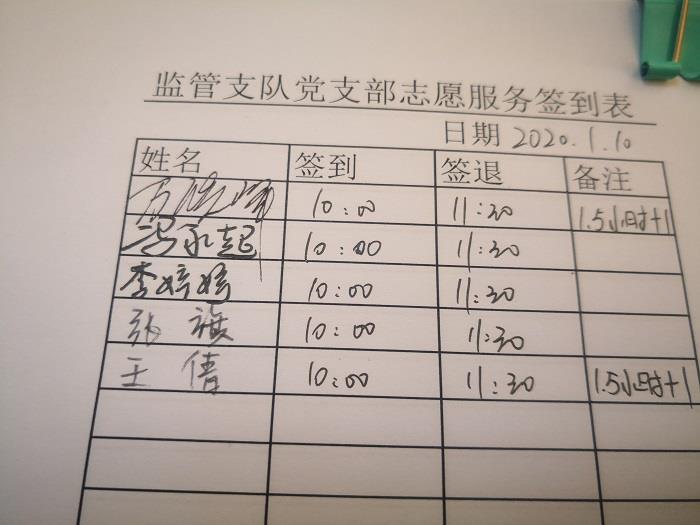 监管支队党支部志愿服务签到表
日期 2020.1.10
姓名 签到 签退 备注
10:00 11:30 1.5小时+1
冯永起 10:00 11:30
李婷婷 10:00 11:30
张旗 10:00 11:30
王倩 10:00 11:30 1.5小时+1